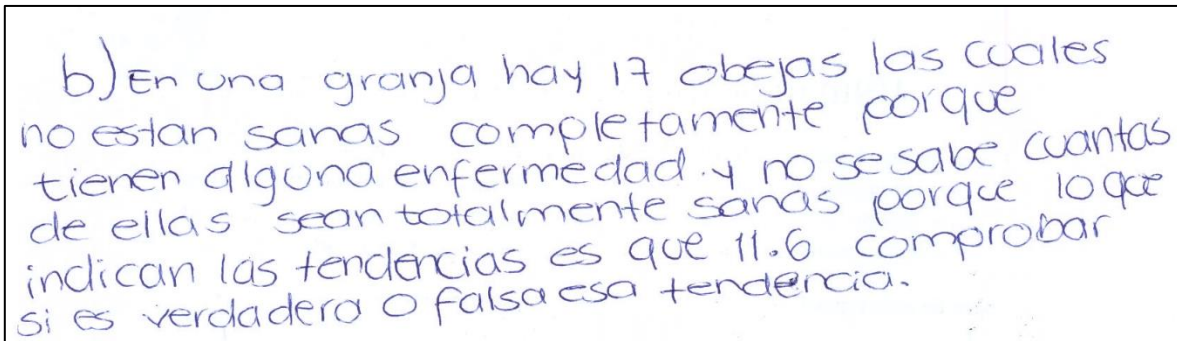 b) En una granja hay 17 obejas las cuales
no estan sanas completamente porque
tienen alguna enfermedad. y no se sabe cuantas
de ellas sean totalmente sanas porque lo que
indican las tendencias es que 11.6 comprobar
si es verdadera o falsa esa tendencia.